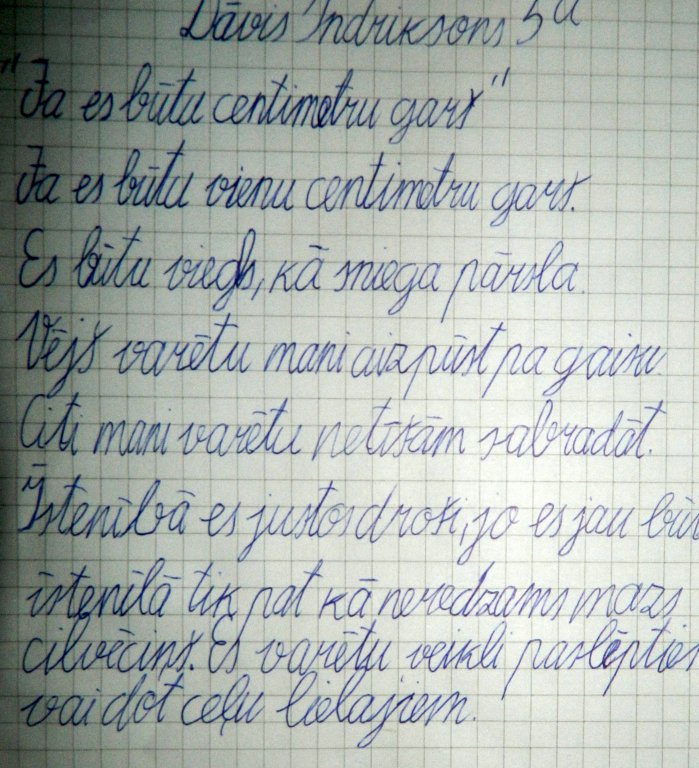 Dāvis Indriksons 5a
"Ja es būtu centimetru garš"
Ja es būtu vienu centimetru garš.
Es būtu viegls, kā sniega pārsla.
Vējš varētu mani aizpūst pa gaisu.
Citi mani varētu netīšām sabradāt.
Īstenībā es justos droši, jo es jau būt
īstenībā tik pat kā neredzams mazs
cilvēciņš. Es varētu veikli paslēpties
vai dot ceļu lielajiem.